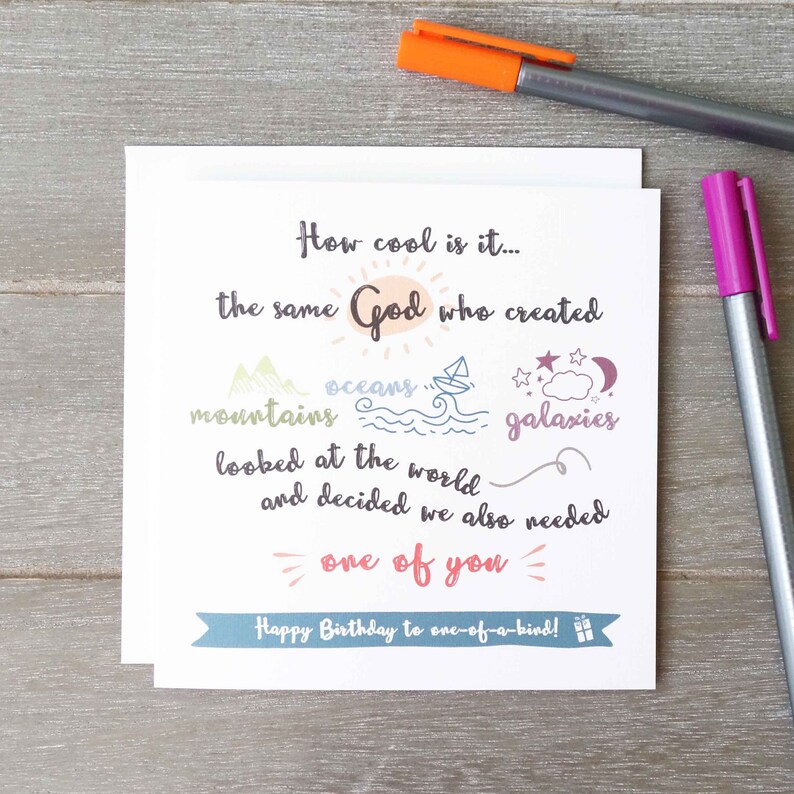 How cool is it...
the same God who created
mountains oceans galaxies
looked at the world
and decided we also needed
one of you
Happy Birthday to one-of-a-kind!